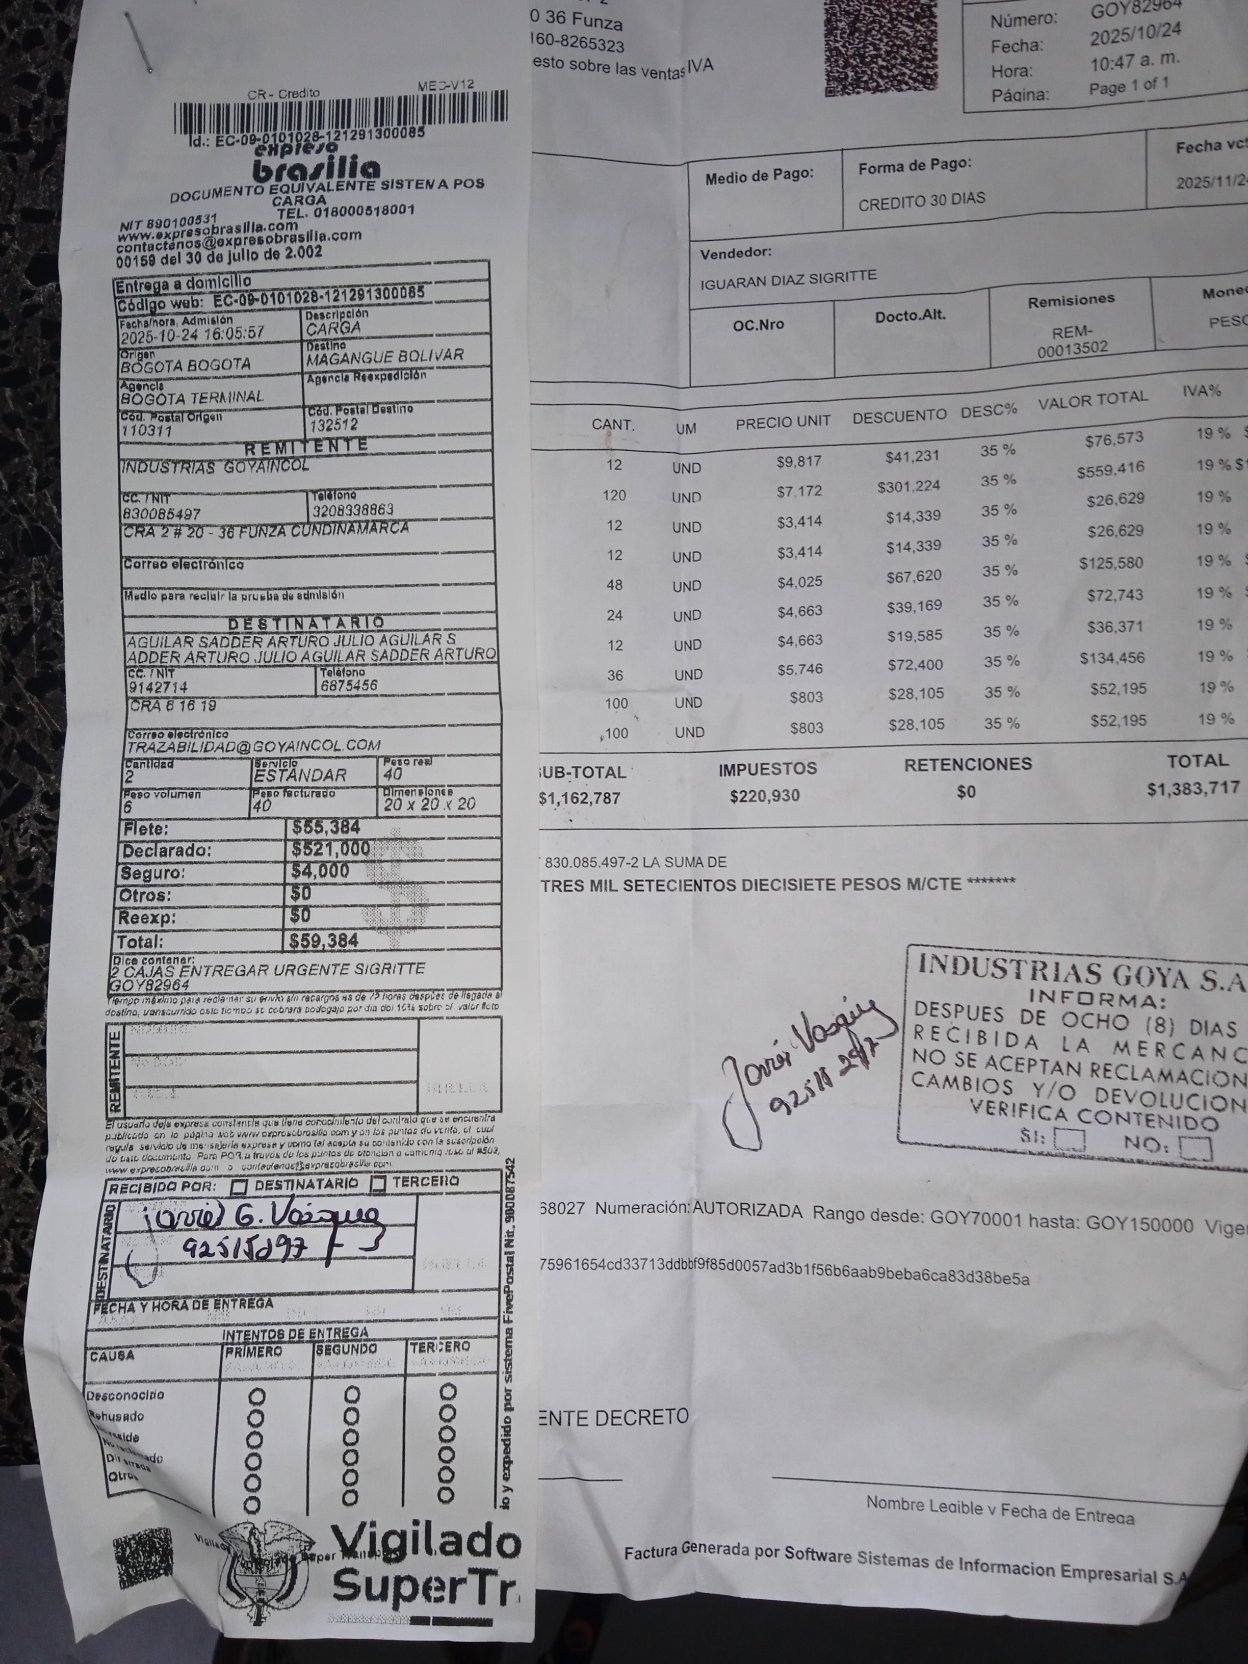 CR - Credito MEC-V12
Id.: EC-09-0101028-121291300085
expreso
brasilia
DOCUMENTO EQUIVALENTE SISTEMA POS
CARGA
NIT 890100531 TEL. 018000518001
www.expresobrasilia.com
contactenos@expresobrasilia.com
00159 del 30 de julio de 2.002
Entrega a domicilio
Código web: EC-09-0101028-121291300085
Fecha/hora, Admisión Descripción
2025-10-24 16:05:57 CARGA
Origen Destino
BOGOTA BOGOTA MAGANGUE BOLIVAR
Agencia Agencia Reexpedición
BOGOTA TERMINAL
Cód. Postal Origen Cód. Postal Destino
110311 132512
REMITENTE
INDUSTRIAS GOYAINCOL
CC. / NIT Teléfono
830085497 3208338863
CRA 2 # 20 - 36 FUNZA CUNDINAMARCA
Correo electrónico
Medio para recibir la prueba de admisión
DESTINATARIO
AGUILAR SADDER ARTURO JULIO AGUILAR S
ADDER ARTURO JULIO AGUILAR SADDER ARTURO
CC. / NIT Teléfono
9142714 6875456
CRA 6 16 19
Correo electrónico
TRAZABILIDAD@GOYAINCOL.COM
Cantidad Servicio Peso real
2 ESTANDAR 40
Peso volumen Peso facturado Dimensiones
6 40 20 x 20 x 20
Flete: $55,384
Declarado: $521,000
Seguro: $4,000
Otros: $0
Reexp: $0
Total: $59,384
Dice contener:
2 CAJAS ENTREGAR URGENTE SIGRITTE
GOY82964
Tiempo máximo para reclamar su envío sin recargos es de 72 horas después de llegada al
destino, transcurrido este tiempo se cobrará bodegaje por día del 10% sobre el valor flete
REMITENTE
El usuario deja expresa constancia que tiene conocimiento del contrato que se encuentra
publicado en la página web www.expresobrasilia.com y en los puntos de venta, el cual
regula servicio de mensajería expresa y como tal acepta su contenido con la suscripción
de este documento. Para PQR a través de los puntos de atención o
www.expresobrasilia.com o contactenos@expresobrasilia.com
RECIBIDO POR: DESTINATARIO TERCERO
DESTINATARIO
Javier G. Vasquez
92515297
FECHA Y HORA DE ENTREGA
INTENTOS DE ENTREGA
CAUSA PRIMERO SEGUNDO TERCERO
Desconocido
Rehusado
Otros
io y expedido por sistema FivePostal Nit. 900087542
Vigilado
SuperTr
0 36 Funza
160-8265323
esto sobre las ventas IVA
Número: GOY82964
Fecha: 2025/10/24
Hora: 10:47 a. m.
Página: Page 1 of 1
Medio de Pago: Forma de Pago: Fecha vc
CREDITO 30 DIAS 2025/11/24
Vendedor:
IGUARAN DIAZ SIGRITTE
OC.Nro Docto.Alt. Remisiones Mone
REM- PESO
00013502
CANT. UM PRECIO UNIT DESCUENTO DESC% VALOR TOTAL IVA%
12 UND $9,817 $41,231 35 % $76,573 19 %
120 UND $7,172 $301,224 35 % $559,416 19 %
12 UND $3,414 $14,339 35 % $26,629 19 %
12 UND $3,414 $14,339 35 % $26,629 19 %
48 UND $4,025 $67,620 35 % $125,580 19 %
24 UND $4,663 $39,169 35 % $72,743 19 %
12 UND $4,663 $19,585 35 % $36,371 19 %
36 UND $5,746 $72,400 35 % $134,456 19 %
100 UND $803 $28,105 35 % $52,195 19 %
100 UND $803 $28,105 35 % $52,195 19 %
SUB-TOTAL IMPUESTOS RETENCIONES TOTAL
$1,162,787 $220,930 $0 $1,383,717
830.085.497-2 LA SUMA DE
TRES MIL SETECIENTOS DIECISIETE PESOS M/CTE *******
Javier Vasquez
92515297
INDUSTRIAS GOYA S.A
INFORMA:
DESPUES DE OCHO (8) DIAS
RECIBIDA LA MERCANC
NO SE ACEPTAN RECLAMACION
CAMBIOS Y/O DEVOLUCION
VERIFICA CONTENIDO
SI: NO:
68027 Numeración: AUTORIZADA Rango desde: GOY70001 hasta: GOY150000 Vige
75961654cd33713ddbbf9f85d0057ad3b1f56b6aab9beba6ca83d38be5a
ENTE DECRETO
Nombre Legible y Fecha de Entrega
Factura Generada por Software Sistemas de Informacion Empresarial S.A